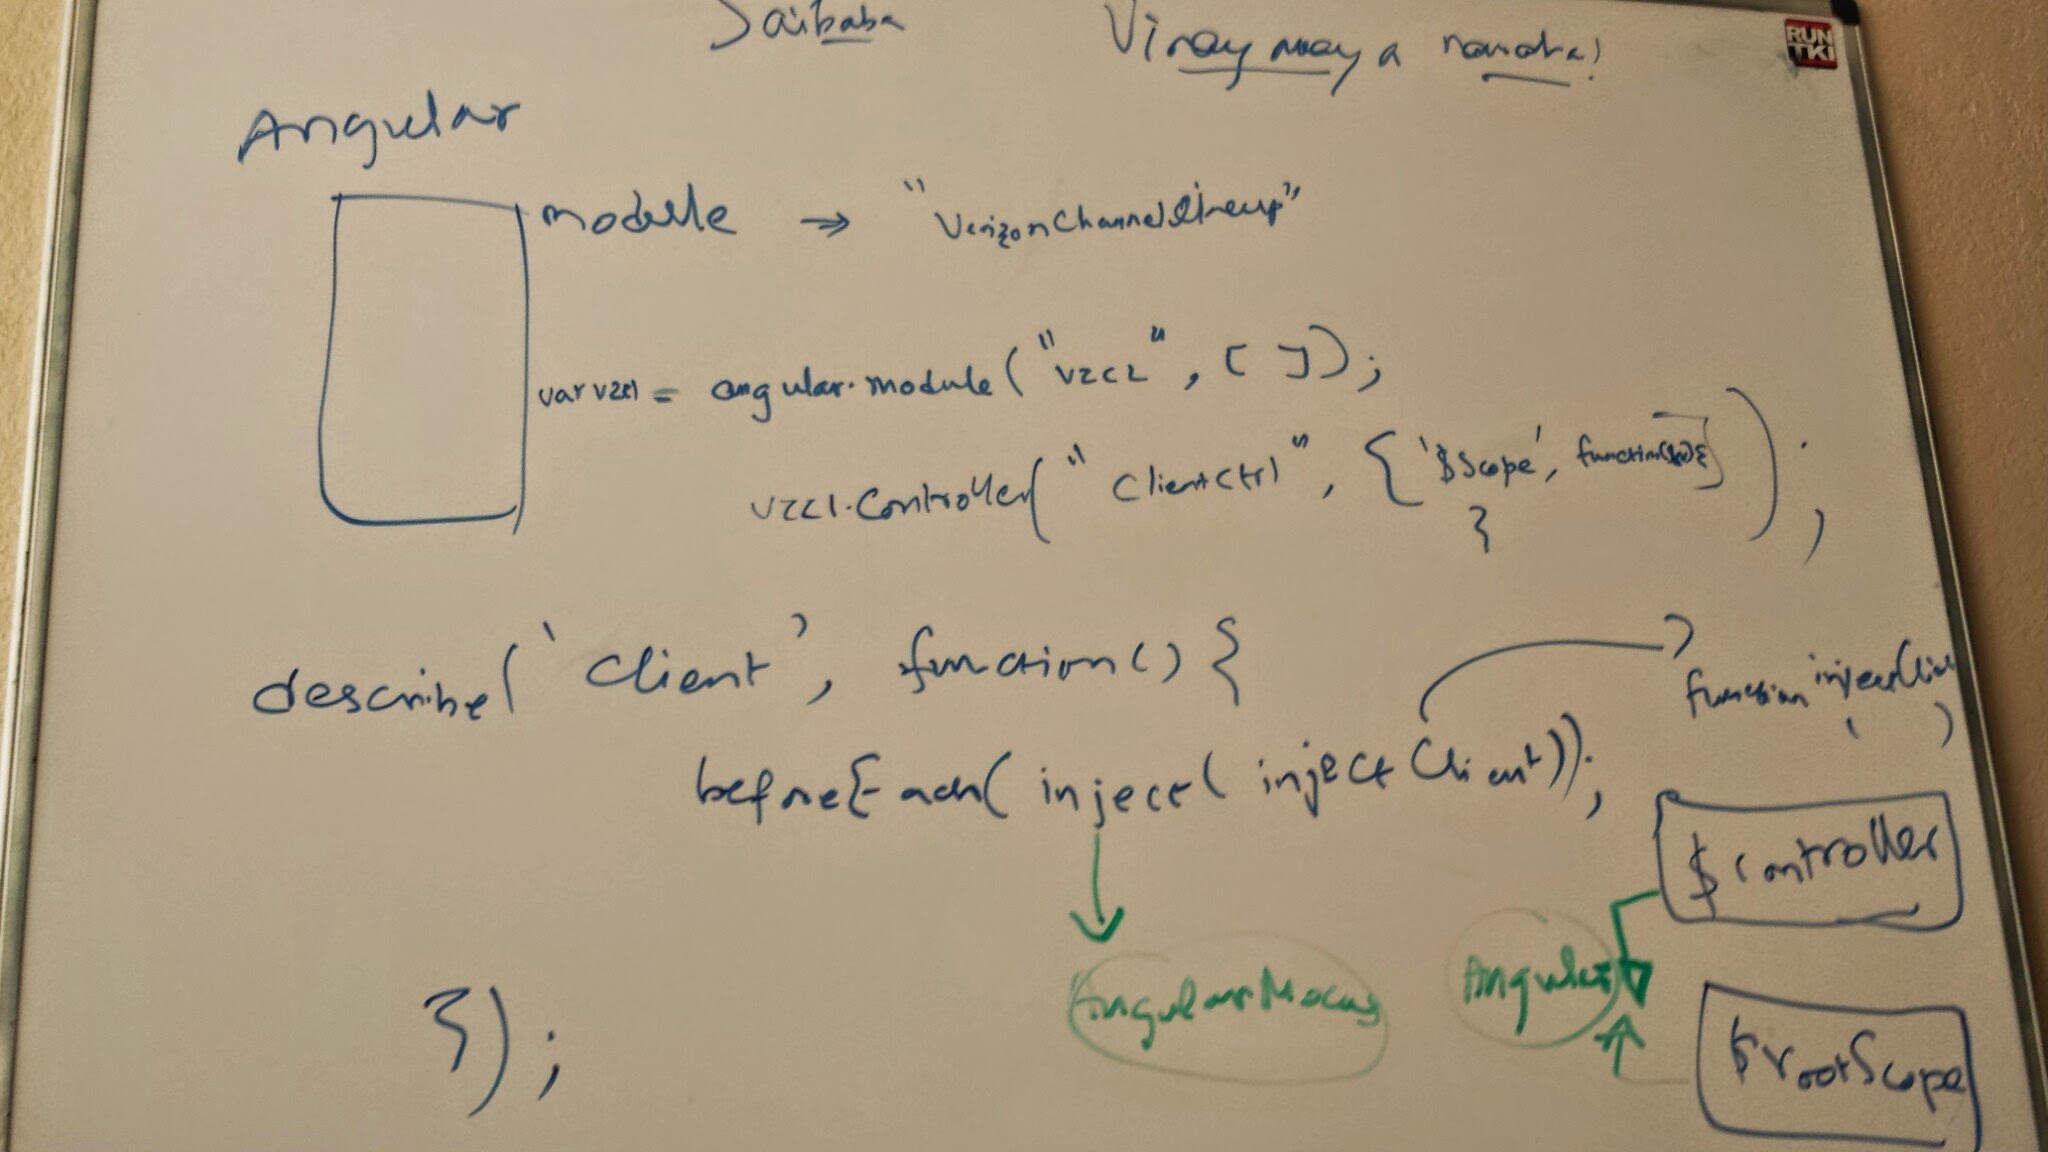 Saibaba
RUN
TKI
Angular
module → "VerizonChannelLineup"
var vzcl = angular.module("vzcl", [ ]);
vzcl.Controller("ClientCtrl", { '$Scope',
}
);
describe('Client', function() {
beforeEach( inject( injectClient));
function
( )
$controller
AngularMocks
Angular
$rootScope
});